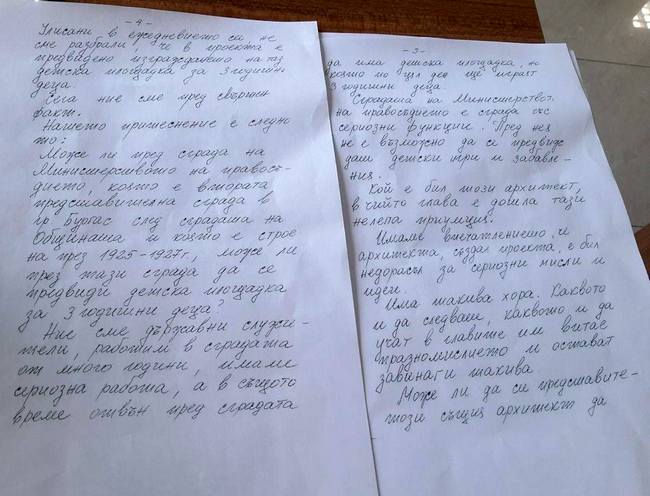 - 4 -
Улисани в ежедневието си не
сме разбрали, че в проекта е
предвидено изграждането на таз
детска площадка за 3 годишни
деца.
Сега ние сме пред свършен
факт.
Нашето притеснение е следно
то:
Може ли пред сграда на
Министерството на правосъ-
дието, която е втората
представителна сграда в
гр. Бургас след сградата на
Общината и която е строе
на през 1925-1927г., може ли
през тази сграда да се
предвиди детска площадка
за 3 годишни деца?
Ние сме държавни служи-
тели, работим в сградата
от много години, имаме
сериозна работа, а в същото
време отвън пред сградата
- 3 -
да има детска площадка, на
която по цял ден ще играят
3 годишни деца.
Сградата на Министерствот.
на правосъдието е сграда със
сериозни функции. Пред нея
не е възможно да се предвиж
дат детски игри и забавле-
ния.
Кой е бил този архитект,
в чийто глава е дошла тази
нелепа приумица.
Имаме впечатлението, и
архитекта, създал проекта, е бил
недорасъл за сериозни мисли и
идеи.
Има такива хора. Каквото
и да следват, каквото и да
учат в главите им витае
празномислието и остават
завинаги такива.
Може ли да си представите-
този същия архитект да